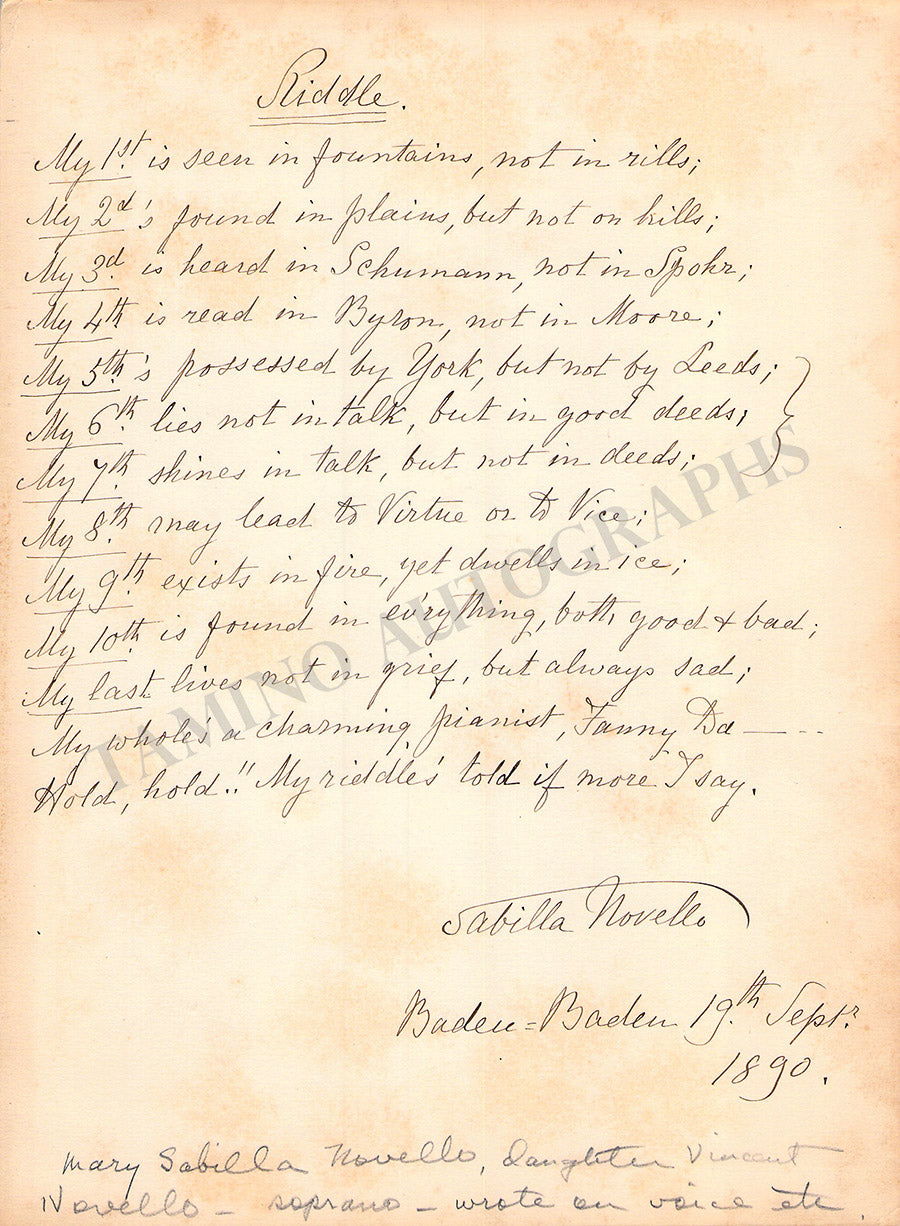 Riddle.
My 1st. is seen in fountains, not in rills;
My 2d's found in plains, but not on hills;
My 3d. is heard in Schumann, not in Spohr;
My 4th is read in Byron, not in Moore;
My 5th.'s possessed by York, but not by Leeds;
My 6th. lies not in talk, but in good deeds;
My 7th. shines in talk, but not in deeds;
My 8th. may lead to Virtue or to Vice;
My 9th. exists in fire, yet dwells in ice;
My 10th. is found in ev'rything, both good & bad;
My last lives not in grief, but always sad;
My whole's a charming pianist, Fanny Da—--
Hold, hold!! My riddle's told if more I say.
Sabilla Novello
Baden=Baden 19th. Septr.
1890.
Mary Sabilla Novello, daughter Vincent
Novello – soprano – wrote on voice etc.
TAMINO AUTOGRAPHS